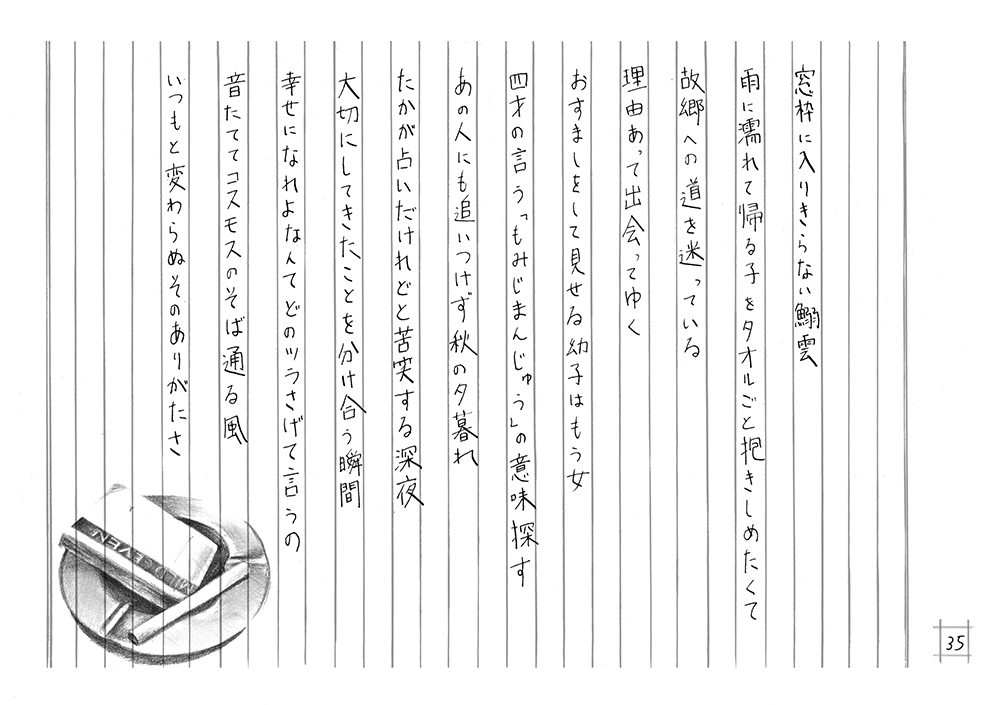 窓枠に入りきらない鰯雲
雨に濡れて帰る子をタオルごと抱きしめたくて
故郷への道を迷っている
理由あって出会ってゆく
おすましをして見せる幼子はもう女
四才の言う「もみじまんじゅう」の意味探す
あの人にも追いつけず秋の夕暮れ
たかが占いだけれどと苦笑する深夜
大切にしてきたことを分け合う瞬間
幸せになれよなんてどのツラさげて言うの
音たててコスモスのそば通る風
いつもと変わらぬそのありがたさ
MILD SEVEN
35